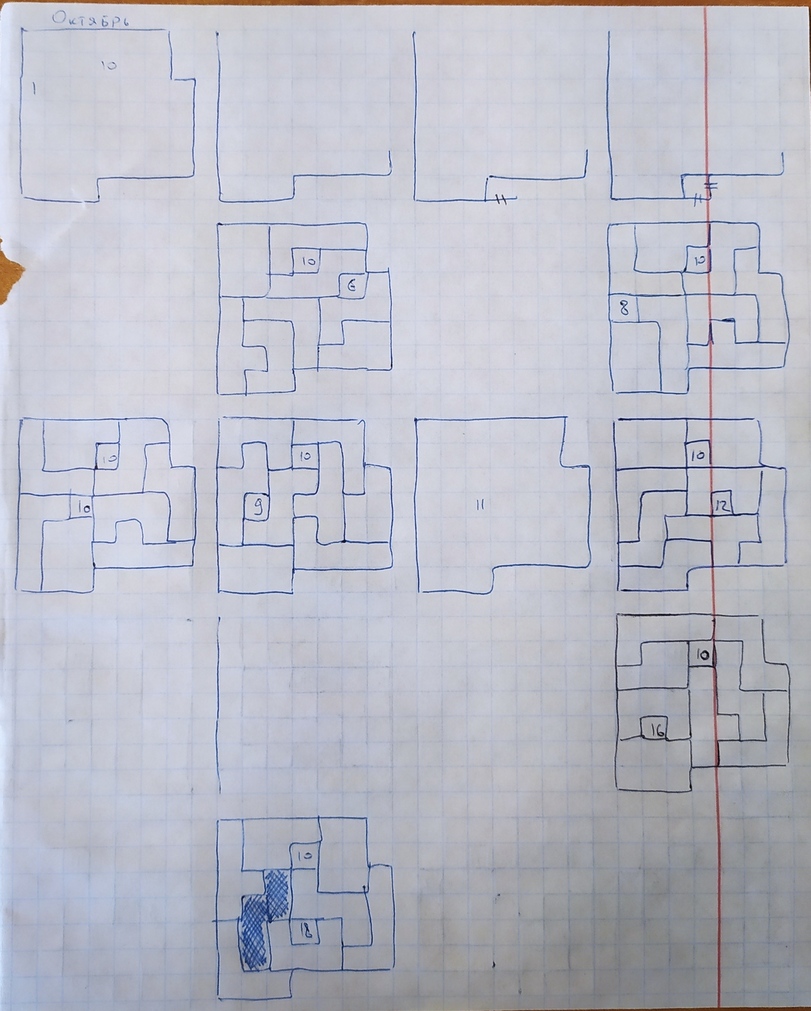 Октябрь
10
1
10
6
10
8
10
10
10
9
11
10
12
10
16
10
18